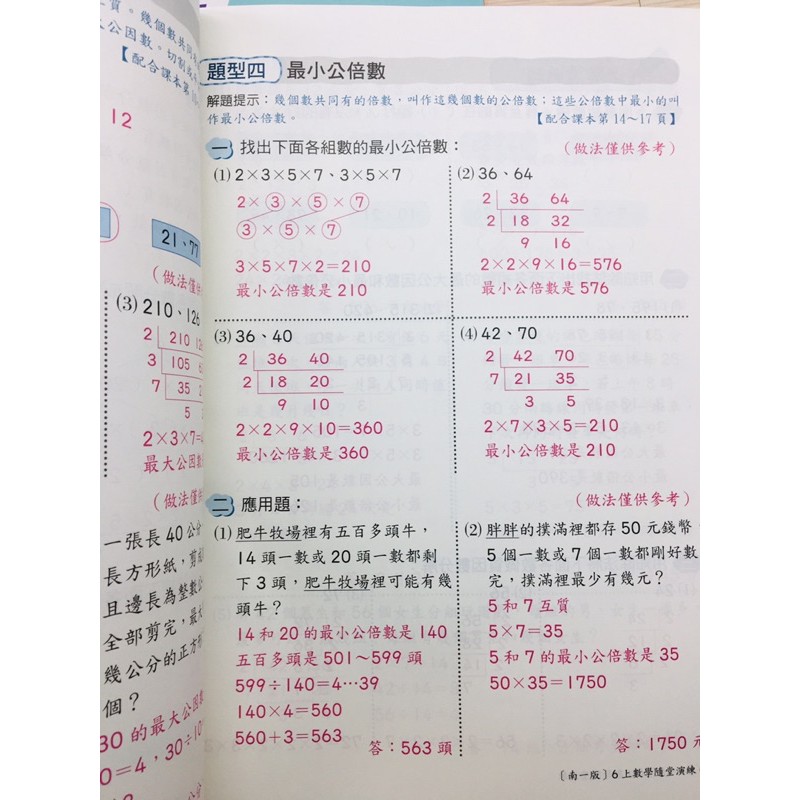 質。幾個數共同
公因數。切割或
【配合課本第
12
21、77
(做法僅供
(3) 210、126
2 210 12
3 105 6
7 35 2
5
2×3×7=4
最大公因數
(做法僅供
一張長40公分
長方形紙,剪成
且邊長為整數公
全部剪完,最大
幾公分的正方形
個?
30的最大公因數
0=4,30÷10
題型四 最小公倍數
解題提示:幾個數共同有的倍數,叫作這幾個數的公倍數;這些公倍數中最小的叫
作最小公倍數。 【配合課本第14~17頁】
一 找出下面各組數的最小公倍數: (做法僅供參考)
(1) 2×3×5×7、3×5×7
2×③×⑤×⑦
③×⑤×⑦
3×5×7×2=210
最小公倍數是210
(2) 36、64
2 36 64
2 18 32
9 16
2×2×9×16=576
最小公倍數是576
(3) 36、40
2 36 40
2 18 20
9 10
2×2×9×10=360
最小公倍數是360
(4) 42、70
2 42 70
7 21 35
3 5
2×7×3×5=210
最小公倍數是210
二 應用題: (做法僅供參考)
(1) 肥牛牧場裡有五百多頭牛,
14頭一數或20頭一數都剩
下3頭,肥牛牧場裡可能有幾
頭牛?
14和20的最小公倍數是140
五百多頭是501~599頭
599÷140=4…39
140×4=560
560+3=563
答:563頭
(2) 胖胖的撲滿裡都存50元錢幣,
5個一數或7個一數都剛好數
完,撲滿裡最少有幾元?
5和7互質
5×7=35
5和7的最小公倍數是35
50×35=1750
答:1750元
〔南一版〕6上數學隨堂演練